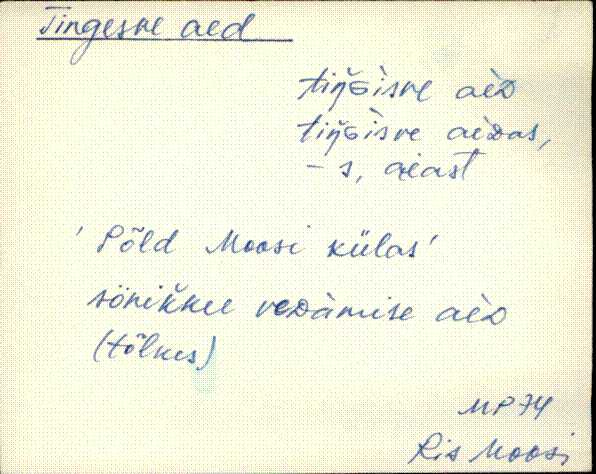 Tingesve aed
tiŋ̆Gìsve aèD
tiŋ̆Gìsve aèDas,
– s, aèast
'Põld Moosi külas'
sönikkee veDàmise aèD
(tõlkes)
MP74
Ris Moosi